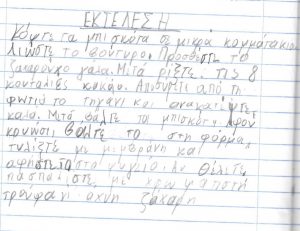 ΕΚΤΕΛΕΣΗ
Κόψτε τα μπισκότα σε μικρά κομματάκια
Λιώστε το βούτυρο. Προσθέστε το
ζαχαρούχο γάλα. Μετά ρίξτε τις 8
κουταλιές κακάο. Αποσύρετε από τη
φωτιά το τηγάνι και ανακατέψτε
καλά. Μετά βάλτε τα μπισκότα. Αφού
κρυώσει βάλτε το στη φόρμα,
τυλίξτε με μεμβράνη και
αφήστε το στο ψυγείο. Αν θέλετε
πασπαλίστε με χρωματιστή
τρούφα ή άχνη ζάχαρη